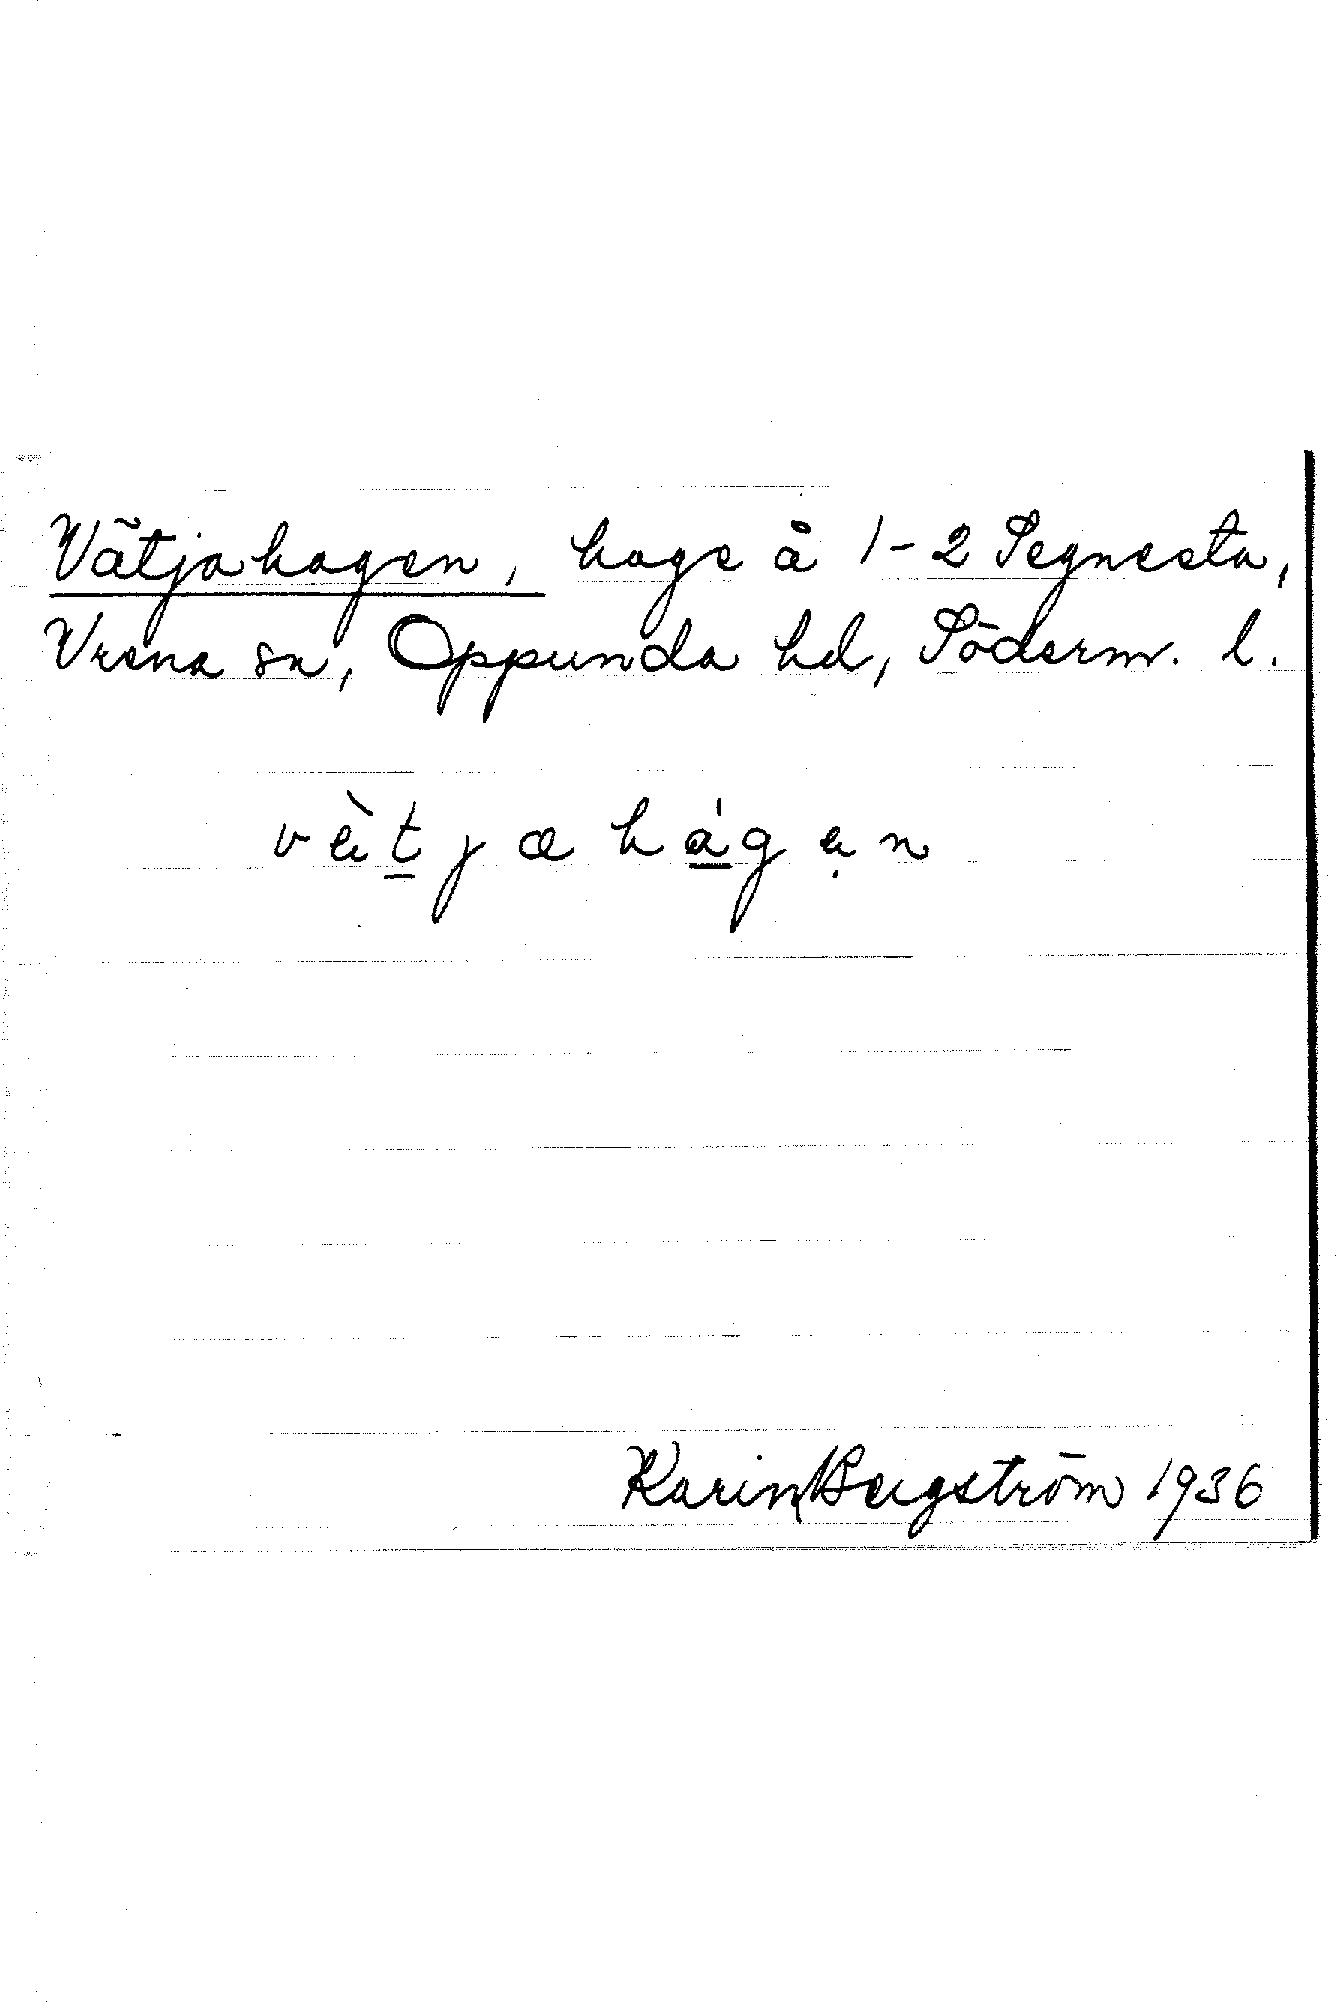 Vätjahagen, hage å 1-2 Segnesta,
Vrena sn, Oppunda hd, Söderm. l.
vètjahágen
Karin Bergström 1936